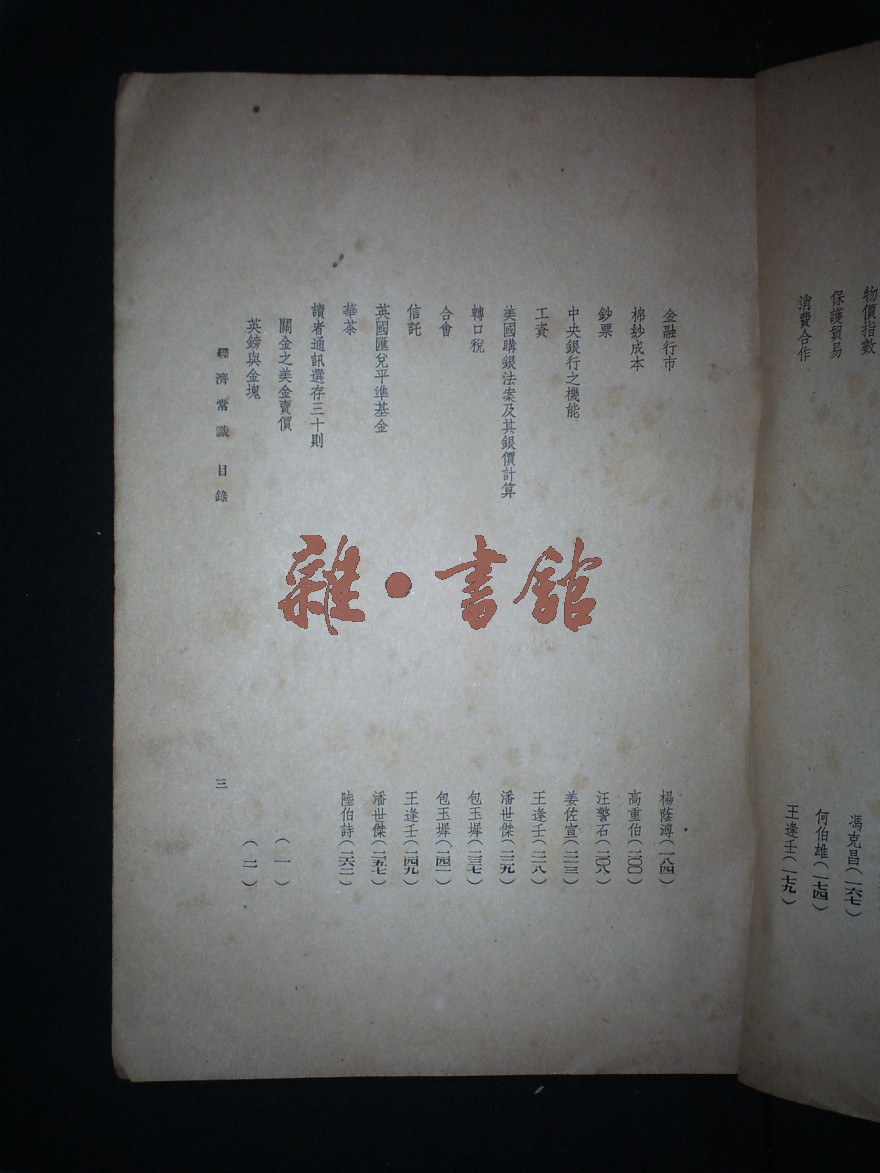 物價指數 馮克昌(一六七)
保護貿易 何伯雄(一七四)
消費合作 王逢壬(一七九)
金融行市 楊蔭溥(一八四)
棉紗成本 高重伯(二〇〇)
鈔票 汪警石(二〇八)
中央銀行之機能 姜佐宣(二一三)
工資 王逢壬(二一八)
美國購銀法案及其銀價計算 潘世傑(二二九)
轉口稅 包玉墀(二三七)
合會 包玉墀(二四一)
信託 王逢壬(二四九)
英國匯兌平準基金 潘世傑(二五七)
華茶 陸伯詩(二六二)
讀者通訊選存三十則
關金之美金賣價 (一)
英鎊與金塊 (二)
經濟常識 目錄 三
雜•書館